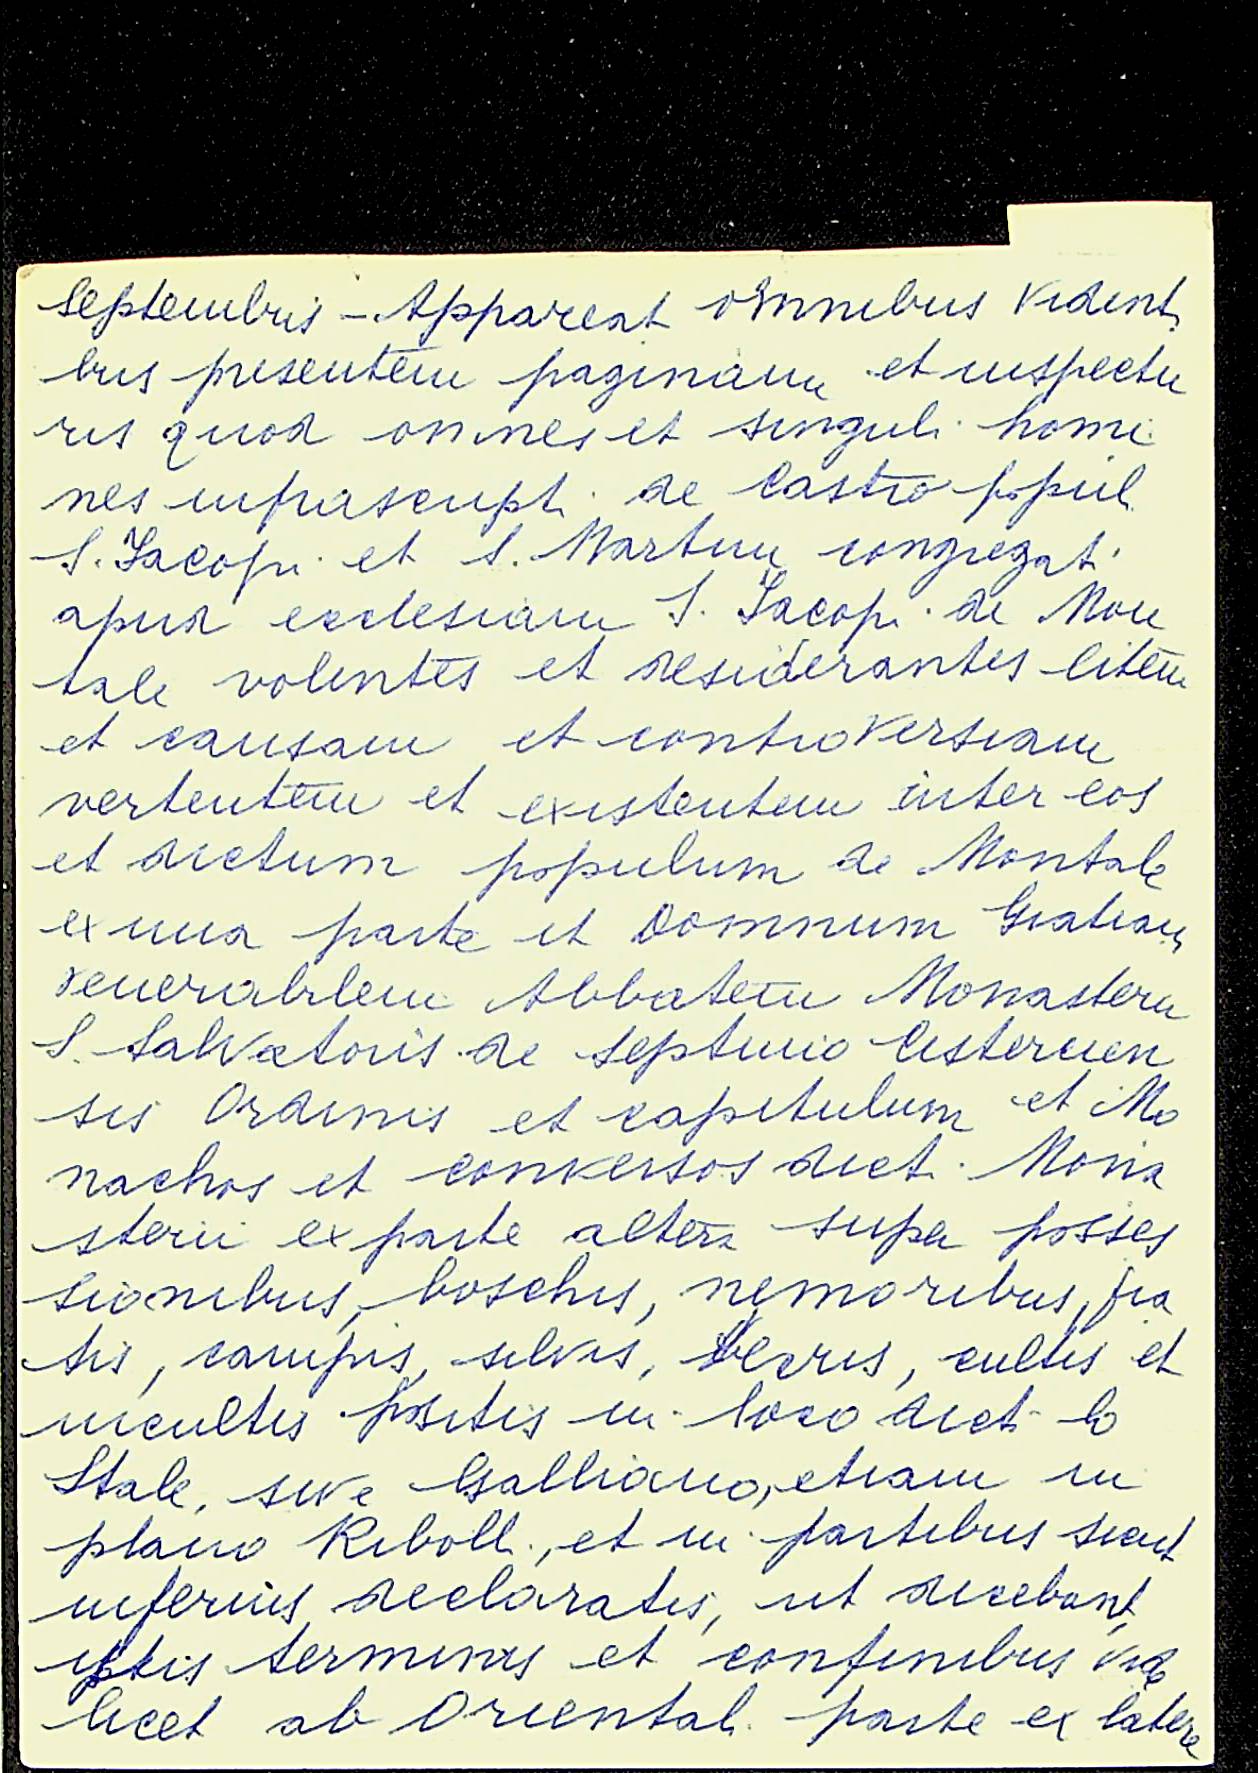 Septembris - Appareat omnibus videnti
bus presentem paginam et inspectu
ris quod omnes et singuli homi
nes infrascripti de Castro popul
S. Jacopi et S. Martini congregati
apud ecclesiam S. Jacopi de Mon
tale volentes et desiderantes litem
et causam et controversiam
vertentem et existentem inter eos
et dictum populum de Montale
ex una parte et Domnum Gratiam
venerabilem Abbatem Monasterii
S. Salvatoris de Septimo Cistercien
sis Ordinis et capitulum et Mo
nachos et conversos dicti Mona
sterii ex parte altera super posses
sionibus, boschis, nemoribus, pra
tis, campis, silvis, cultis et
incultis positis in loco dict lo
Stale, sive Galliano, etiam in
plano Riboll., et in partibus sicut
inferius declaratis, ut dicebant,
terminis et confinibus vide
licet ab Orientali parte ex latere